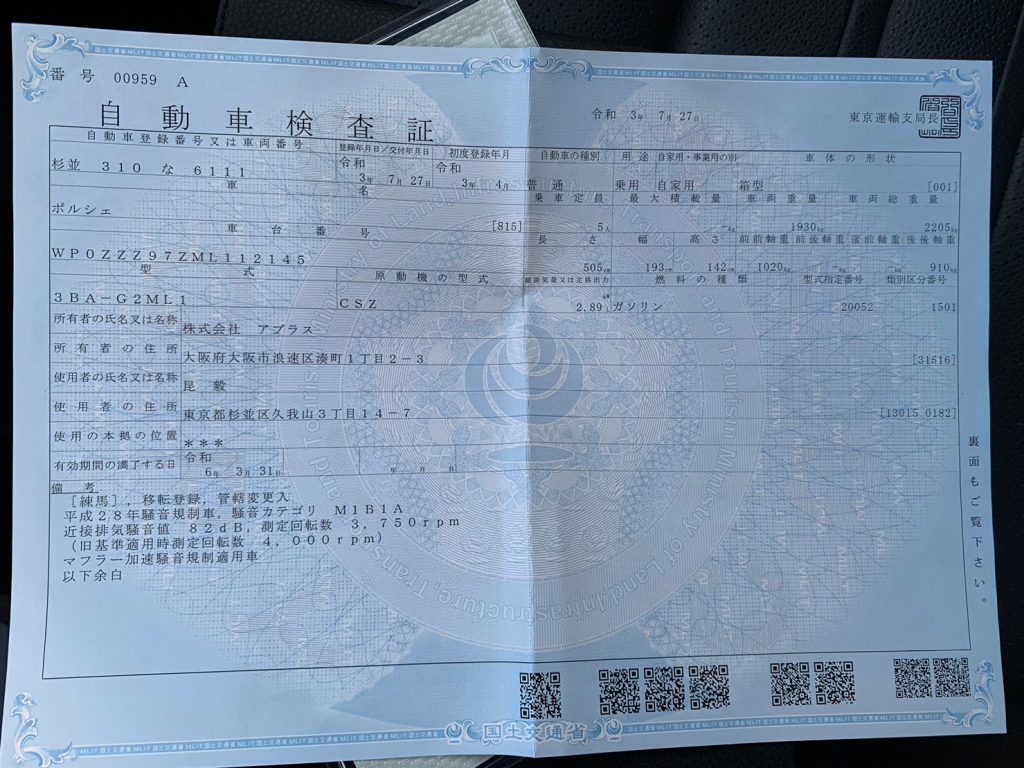 番号 00959 A
自動車検査証
令和 3年 7月 27日
東京運輸支局長
自動車登録番号又は車両番号 登録年月日/交付年月日 初度登録年月 自動車の種別 用途 自家用・事業用の別 車体の形状
杉並 310 な 6111 令和 3年 7月 27日 令和 3年 4月 普通 乗用 自家用 箱型 [001]
車名 乗車定員 最大積載量 車両重量 車両総重量
ポルシェ [815] 5人 -kg 1930kg 2205kg
車台番号 長さ 幅 高さ 前前軸重 前後軸重 後前軸重 後後軸重
WP0ZZZ97ZML112145 505cm 193cm 142cm 1020kg -kg -kg 910kg
型式 原動機の型式 総排気量又は定格出力 燃料の種類 型式指定番号 類別区分番号
3BA-G2ML1 CSZ 2.89 kW L ガソリン 20052 1501
所有者の氏名又は名称 株式会社 アプラス
所有者の住所 大阪府大阪市浪速区湊町1丁目2-3 [31516]
使用者の氏名又は名称 昆 毅
使用者の住所 東京都杉並区久我山3丁目14-7 [13015 0182]
使用の本拠の位置 ***
有効期間の満了する日 令和 6年 3月 31日 年 月 日
備考
[練馬],移転登録,管轄変更入
平成28年騒音規制車,騒音カテゴリ M1B1A
近接排気騒音値 82dB,測定回転数 3,750rpm
(旧基準適用時測定回転数 4,000rpm)
マフラー加速騒音規制適用車
以下余白
裏面もご覧下さい。
国土交通省